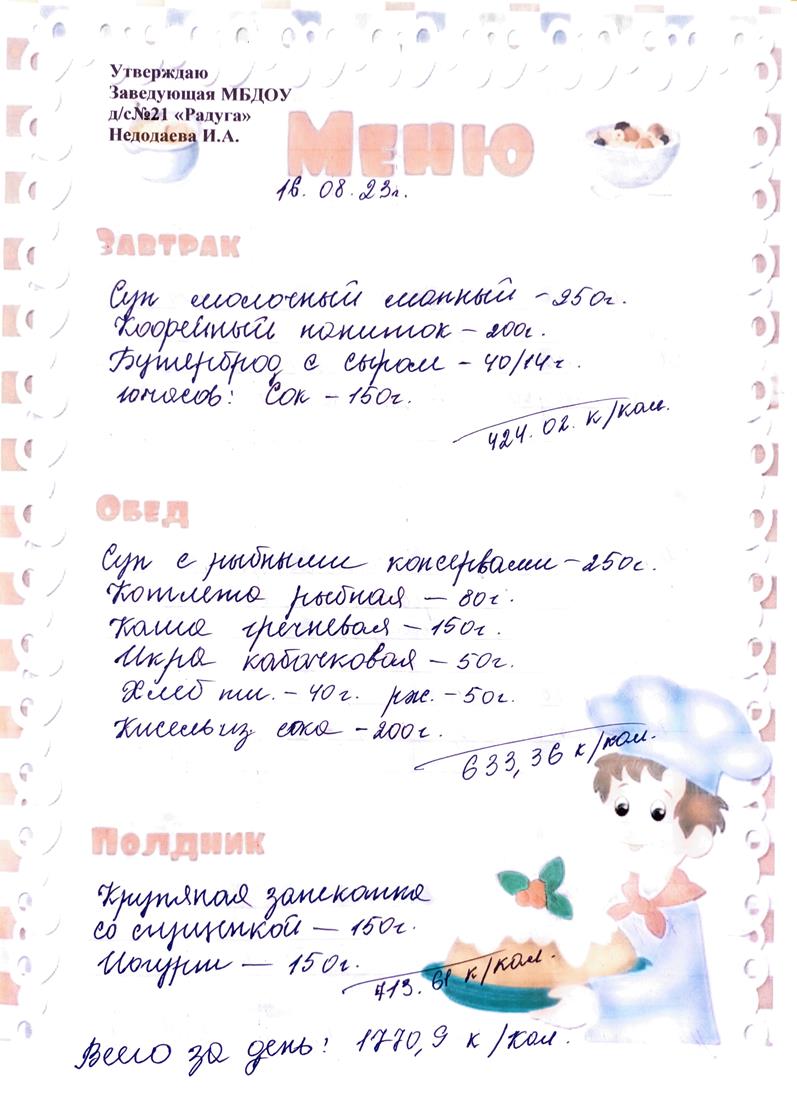 Утверждаю
Заведующая МБДОУ
д/с№21 «Радуга»
Недодаева И.А.
Меню
16. 08. 23г.
Завтрак
Суп молочный манный - 250г.
Кофейный напиток - 200г.
Бутерброд с сыром - 40/14г.
10часов: Сок - 150г.
424. 02. к/кал.
Обед
Суп с рыбными консервами - 250г.
Котлета рыбная - 80г.
Каша гречневая - 150г.
Икра кабачковая - 50г.
Хлеб пш. - 40г. рж. - 50г.
Кисель из сока - 200г.
633,36 к/кал.
Полдник
Крупяная запеканка
со сгущенкой - 150г.
Йогурт - 150г.
413. 61 к/кал.
Всего за день: 1770,9 к/кал.